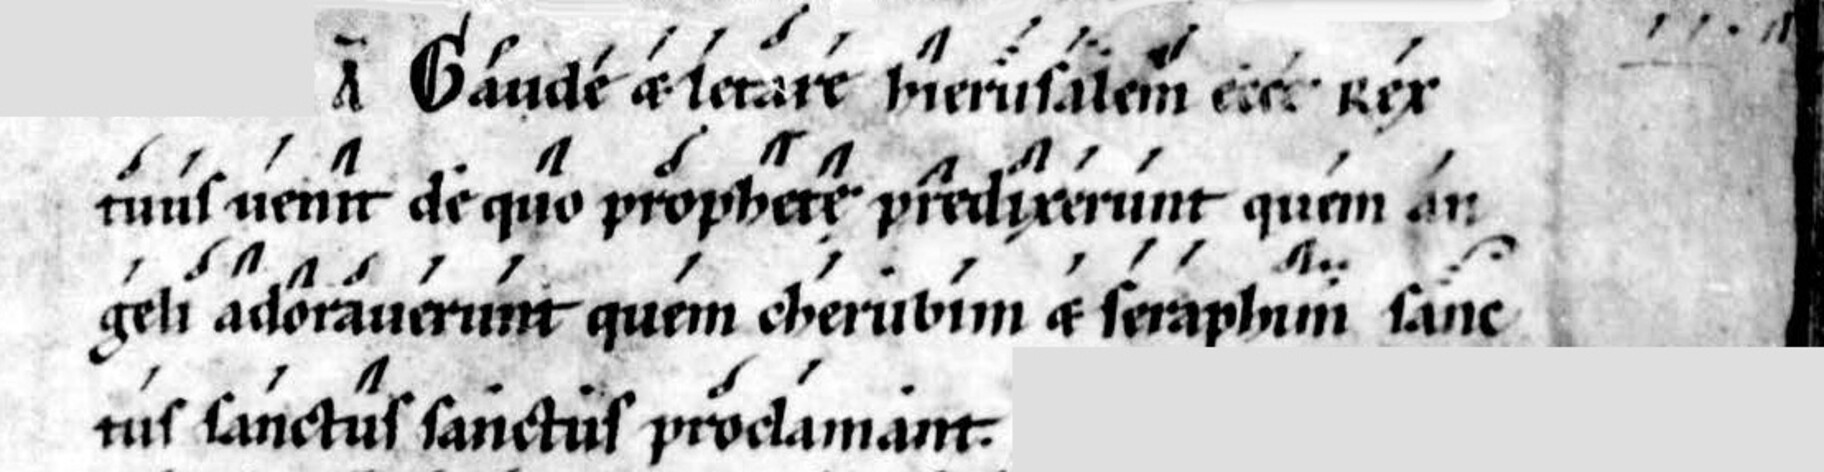 A Gaude & letare hierusalem ecce Rex
tuus uenit de quo prophetę predixerunt quem an
geli adorauerunt quem cherubim & seraphim sanc
tus sanctus sanctus proclamant.